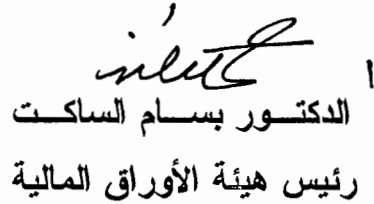 الدكتور بسام الساكت
رئيس هيئة الأوراق المالية